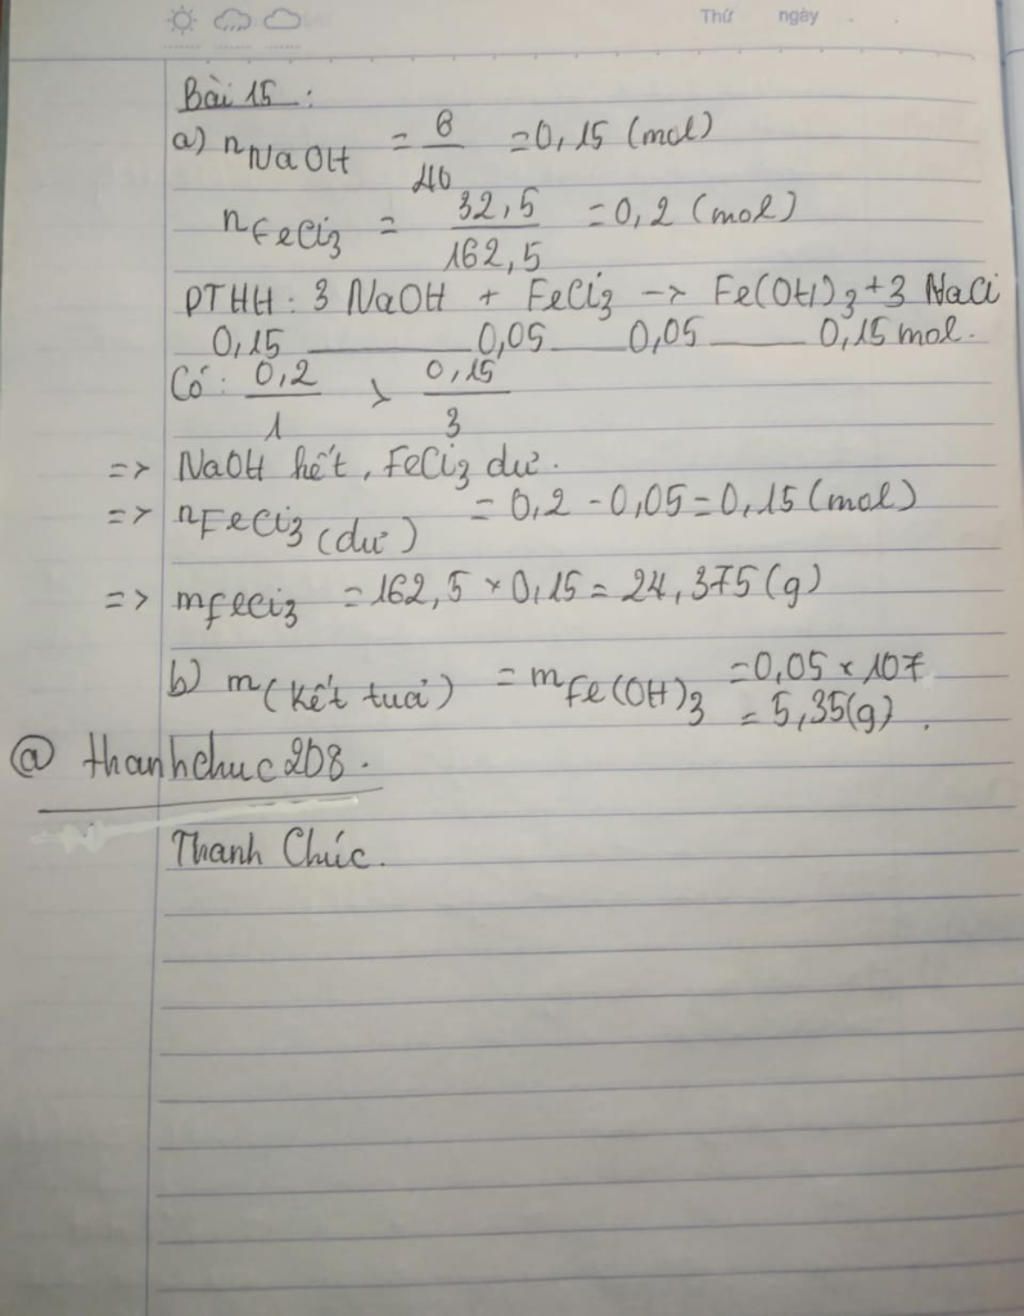 Thứ ngày
Bài 15 :
a) n NaOH = 6/40 = 0,15 (mol)
n FeCl3 = 32,5/162,5 = 0,2 (mol)
PTHH : 3 NaOH + FeCl3 -> Fe(OH)3 + 3 NaCl
0,15 ___ 0,05 ___ 0,05 ___ 0,15 mol.
Có : 0,2/1 > 0,15/3
=> NaOH hết, FeCl3 dư.
=> n FeCl3 (dư) = 0,2 - 0,05 = 0,15 (mol)
=> m FeCl3 = 162,5 × 0,15 = 24,375 (g)
b) m (kết tủa) = m Fe(OH)3 = 0,05 × 107
= 5,35(g) .
@ thanhchuc208.
Thanh Chúc.